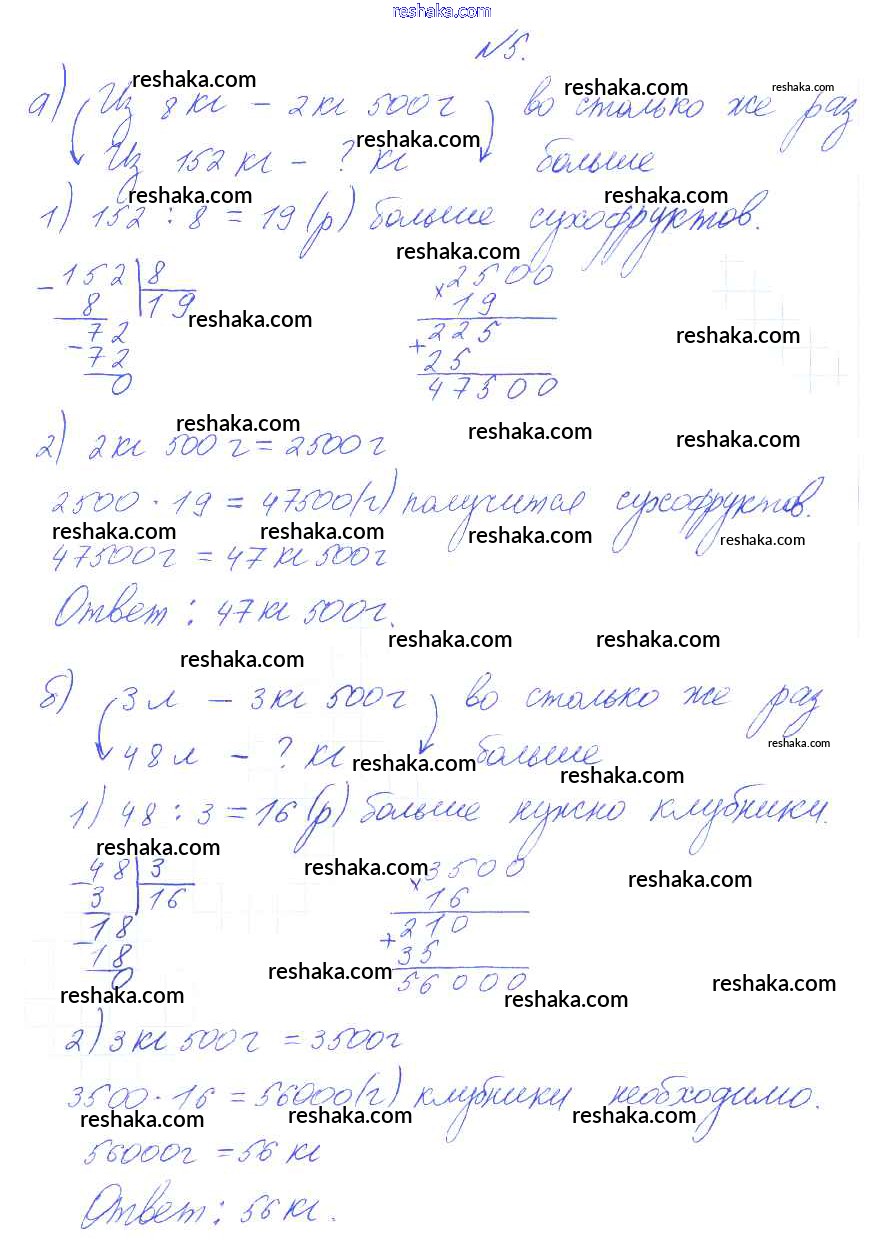 reshaka.com
№5.
reshaka.com reshaka.com reshaka.com
а) Из 8 кг – 2 кг 500 г во столько же раз
reshaka.com
Из 152 кг – ? кг больше
reshaka.com reshaka.com
1) 152 : 8 = 19 (р) больше сухофруктов.
reshaka.com
– 152 | 8 × 2500
8 19 19
reshaka.com reshaka.com
72 + 225
– 72 25
0 47500
reshaka.com reshaka.com reshaka.com
2) 2 кг 500 г = 2500 г
2500 · 19 = 47500 (г) получится сухофруктов.
reshaka.com reshaka.com reshaka.com reshaka.com
47500 г = 47 кг 500 г
Ответ: 47 кг 500 г.
reshaka.com reshaka.com reshaka.com
б) 3 л – 3 кг 500 г во столько же раз
reshaka.com
48 л – ? кг больше
reshaka.com reshaka.com
1) 48 : 3 = 16 (р) больше нужно клубники.
reshaka.com
– 48 | 3 × 3500
reshaka.com reshaka.com
3 16 16
18 + 210
– 18 35
0 56000
reshaka.com reshaka.com reshaka.com reshaka.com
2) 3 кг 500 г = 3500 г
3500 · 16 = 56000 (г) клубники необходимо.
reshaka.com reshaka.com reshaka.com
56000 г = 56 кг
Ответ: 56 кг.